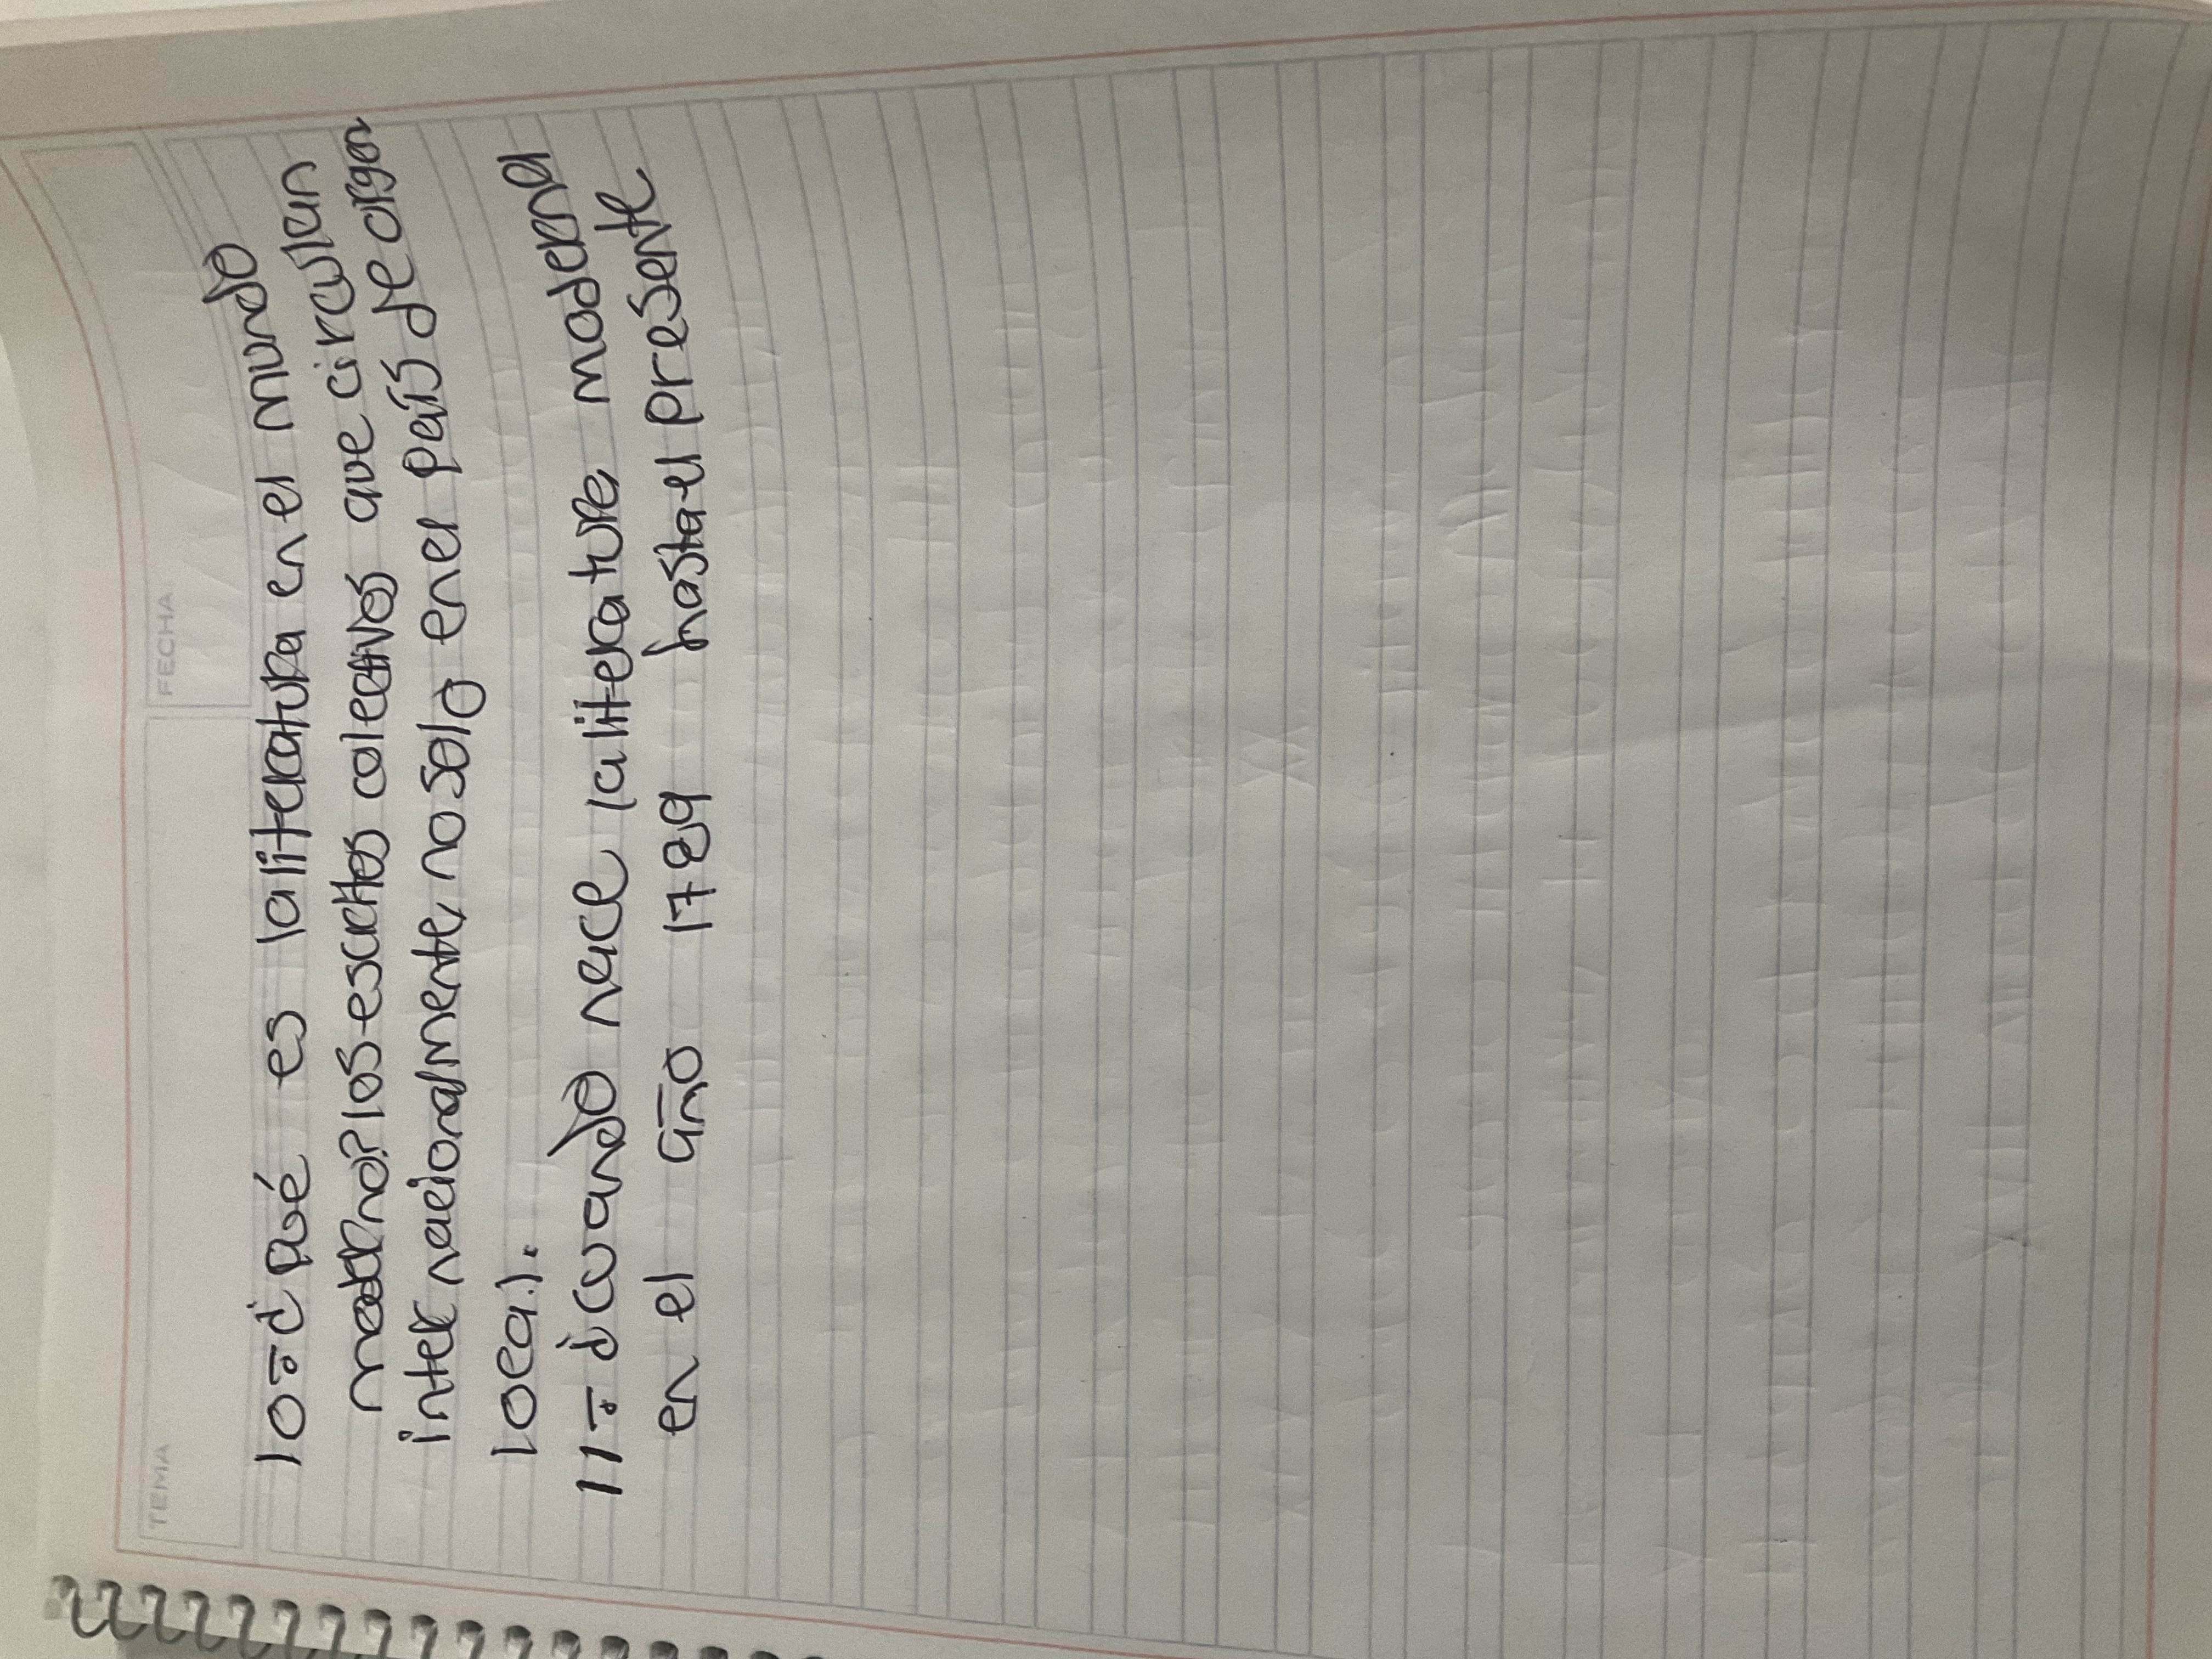 TEMA
FECHA
10= ¿Qué es la literatura en el mundo
moderno? los escritos colectivos que circulan
inter nacionalmente, no solo en el país de origen
local).
11= ¿cuando nace la literatura moderna
en el año 1789 hasta el presente